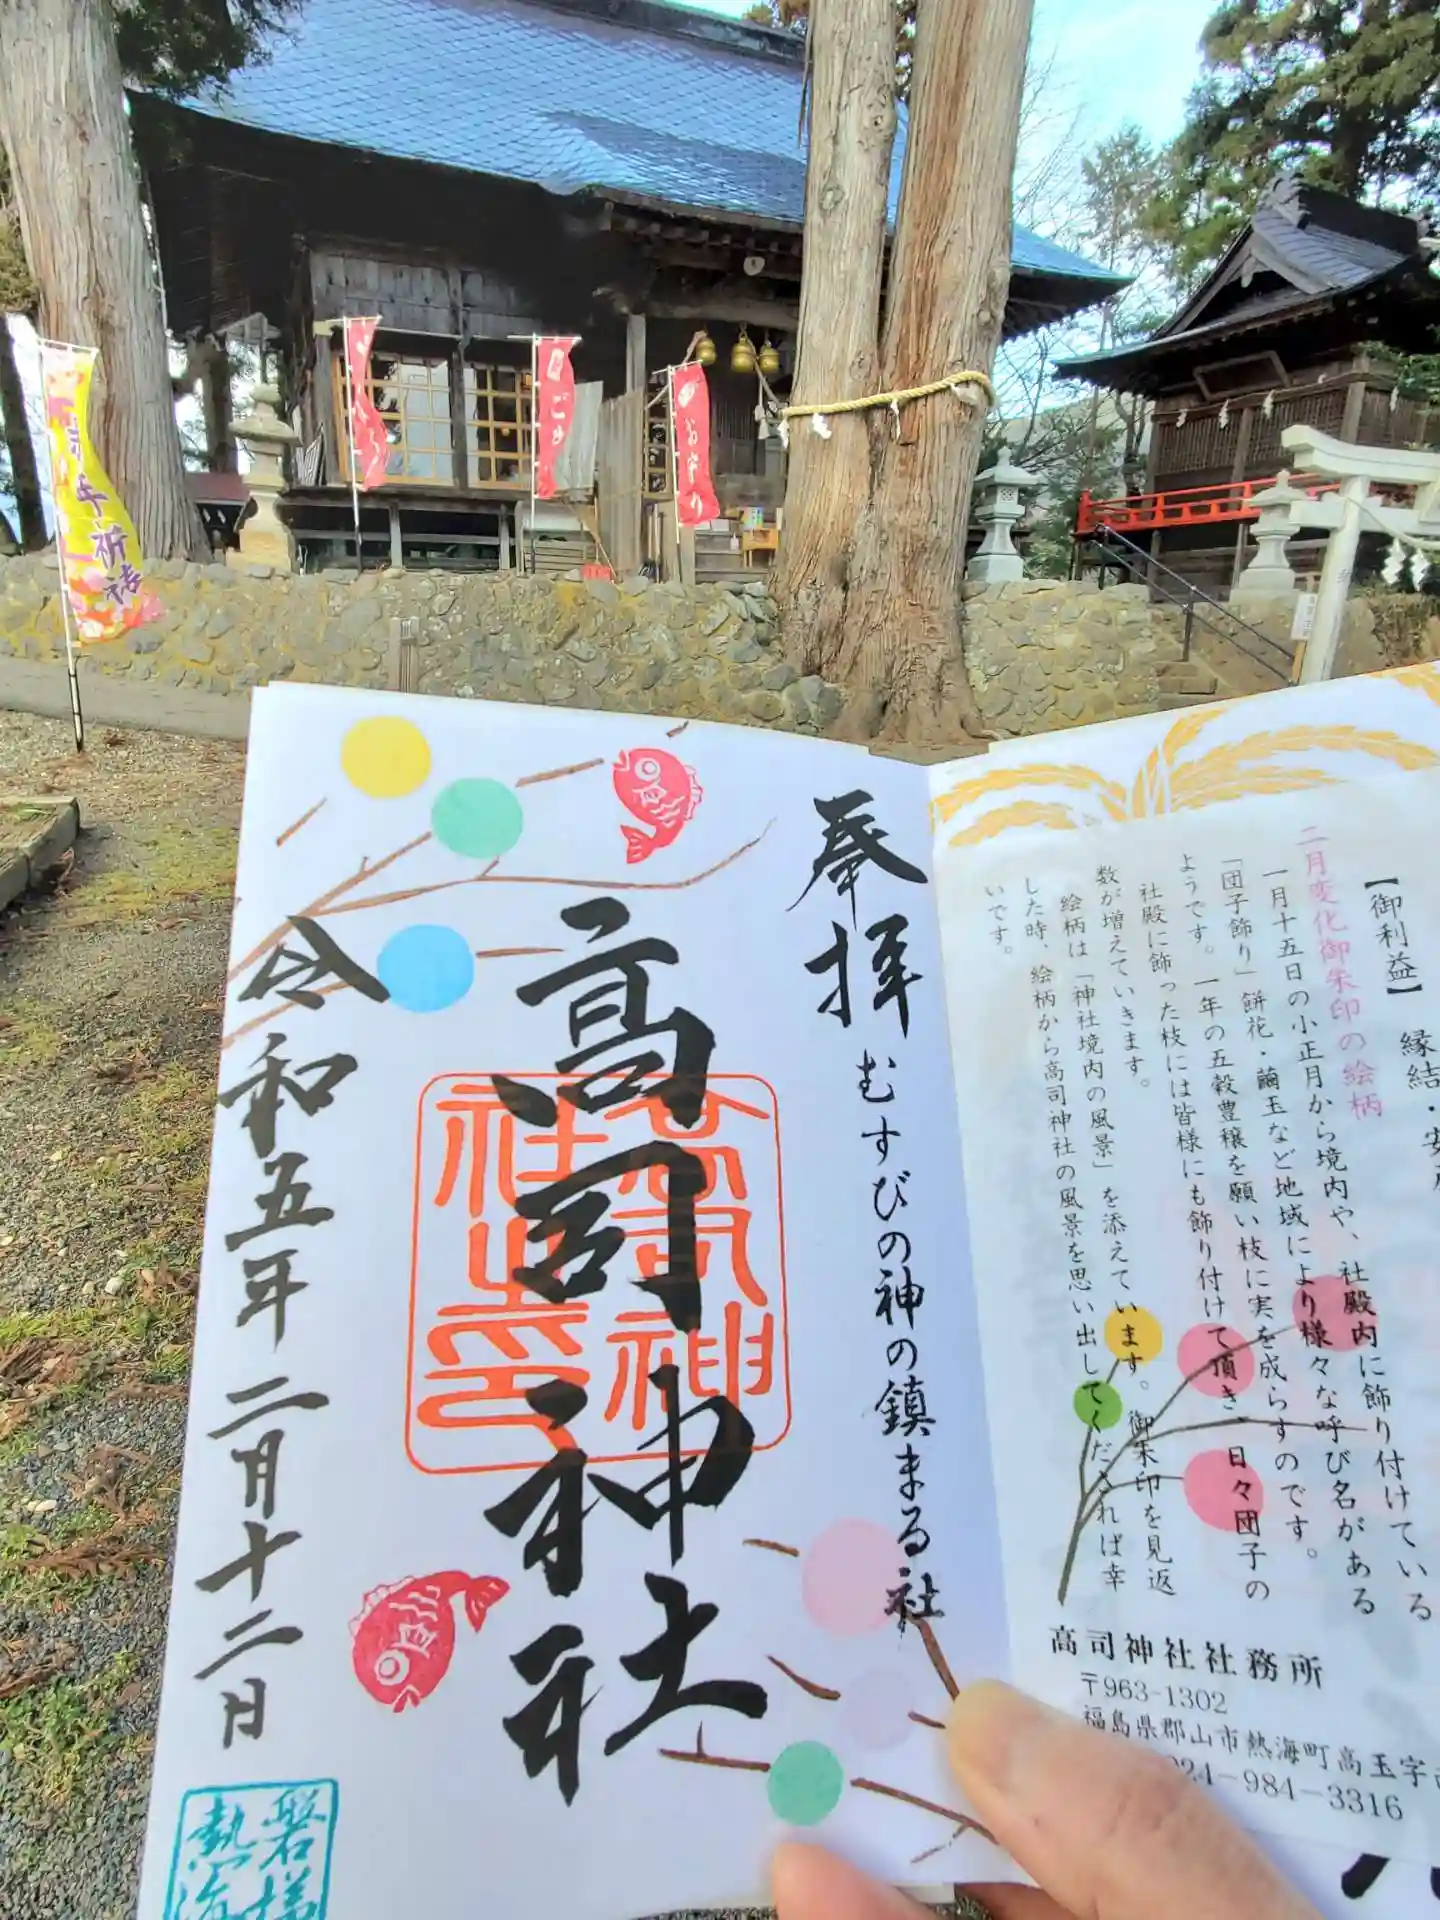 奉拝
むすびの神の鎮まる社
高司神社
高司神社之印
令和五年二月十二日
磐梯
熱海
【御利益】 縁結・安産
二月変化御朱印の絵柄
一月十五日の小正月から境内や、社殿内に飾り付けている
「団子飾り」餅花・繭玉など地域により様々な呼び名がある
ようです。一年の五穀豊穣を願い枝に実を成らすのです。
社殿に飾った枝には皆様にも飾り付けて頂き、日々団子の
数が増えていきます。
絵柄は「神社境内の風景」を添えています。御朱印を見返
した時、絵柄から高司神社の風景を思い出してくだされば幸
いです。
高司神社社務所
〒963-1302
福島県郡山市熱海町高玉字
024-984-3316
お守り
年祈祷